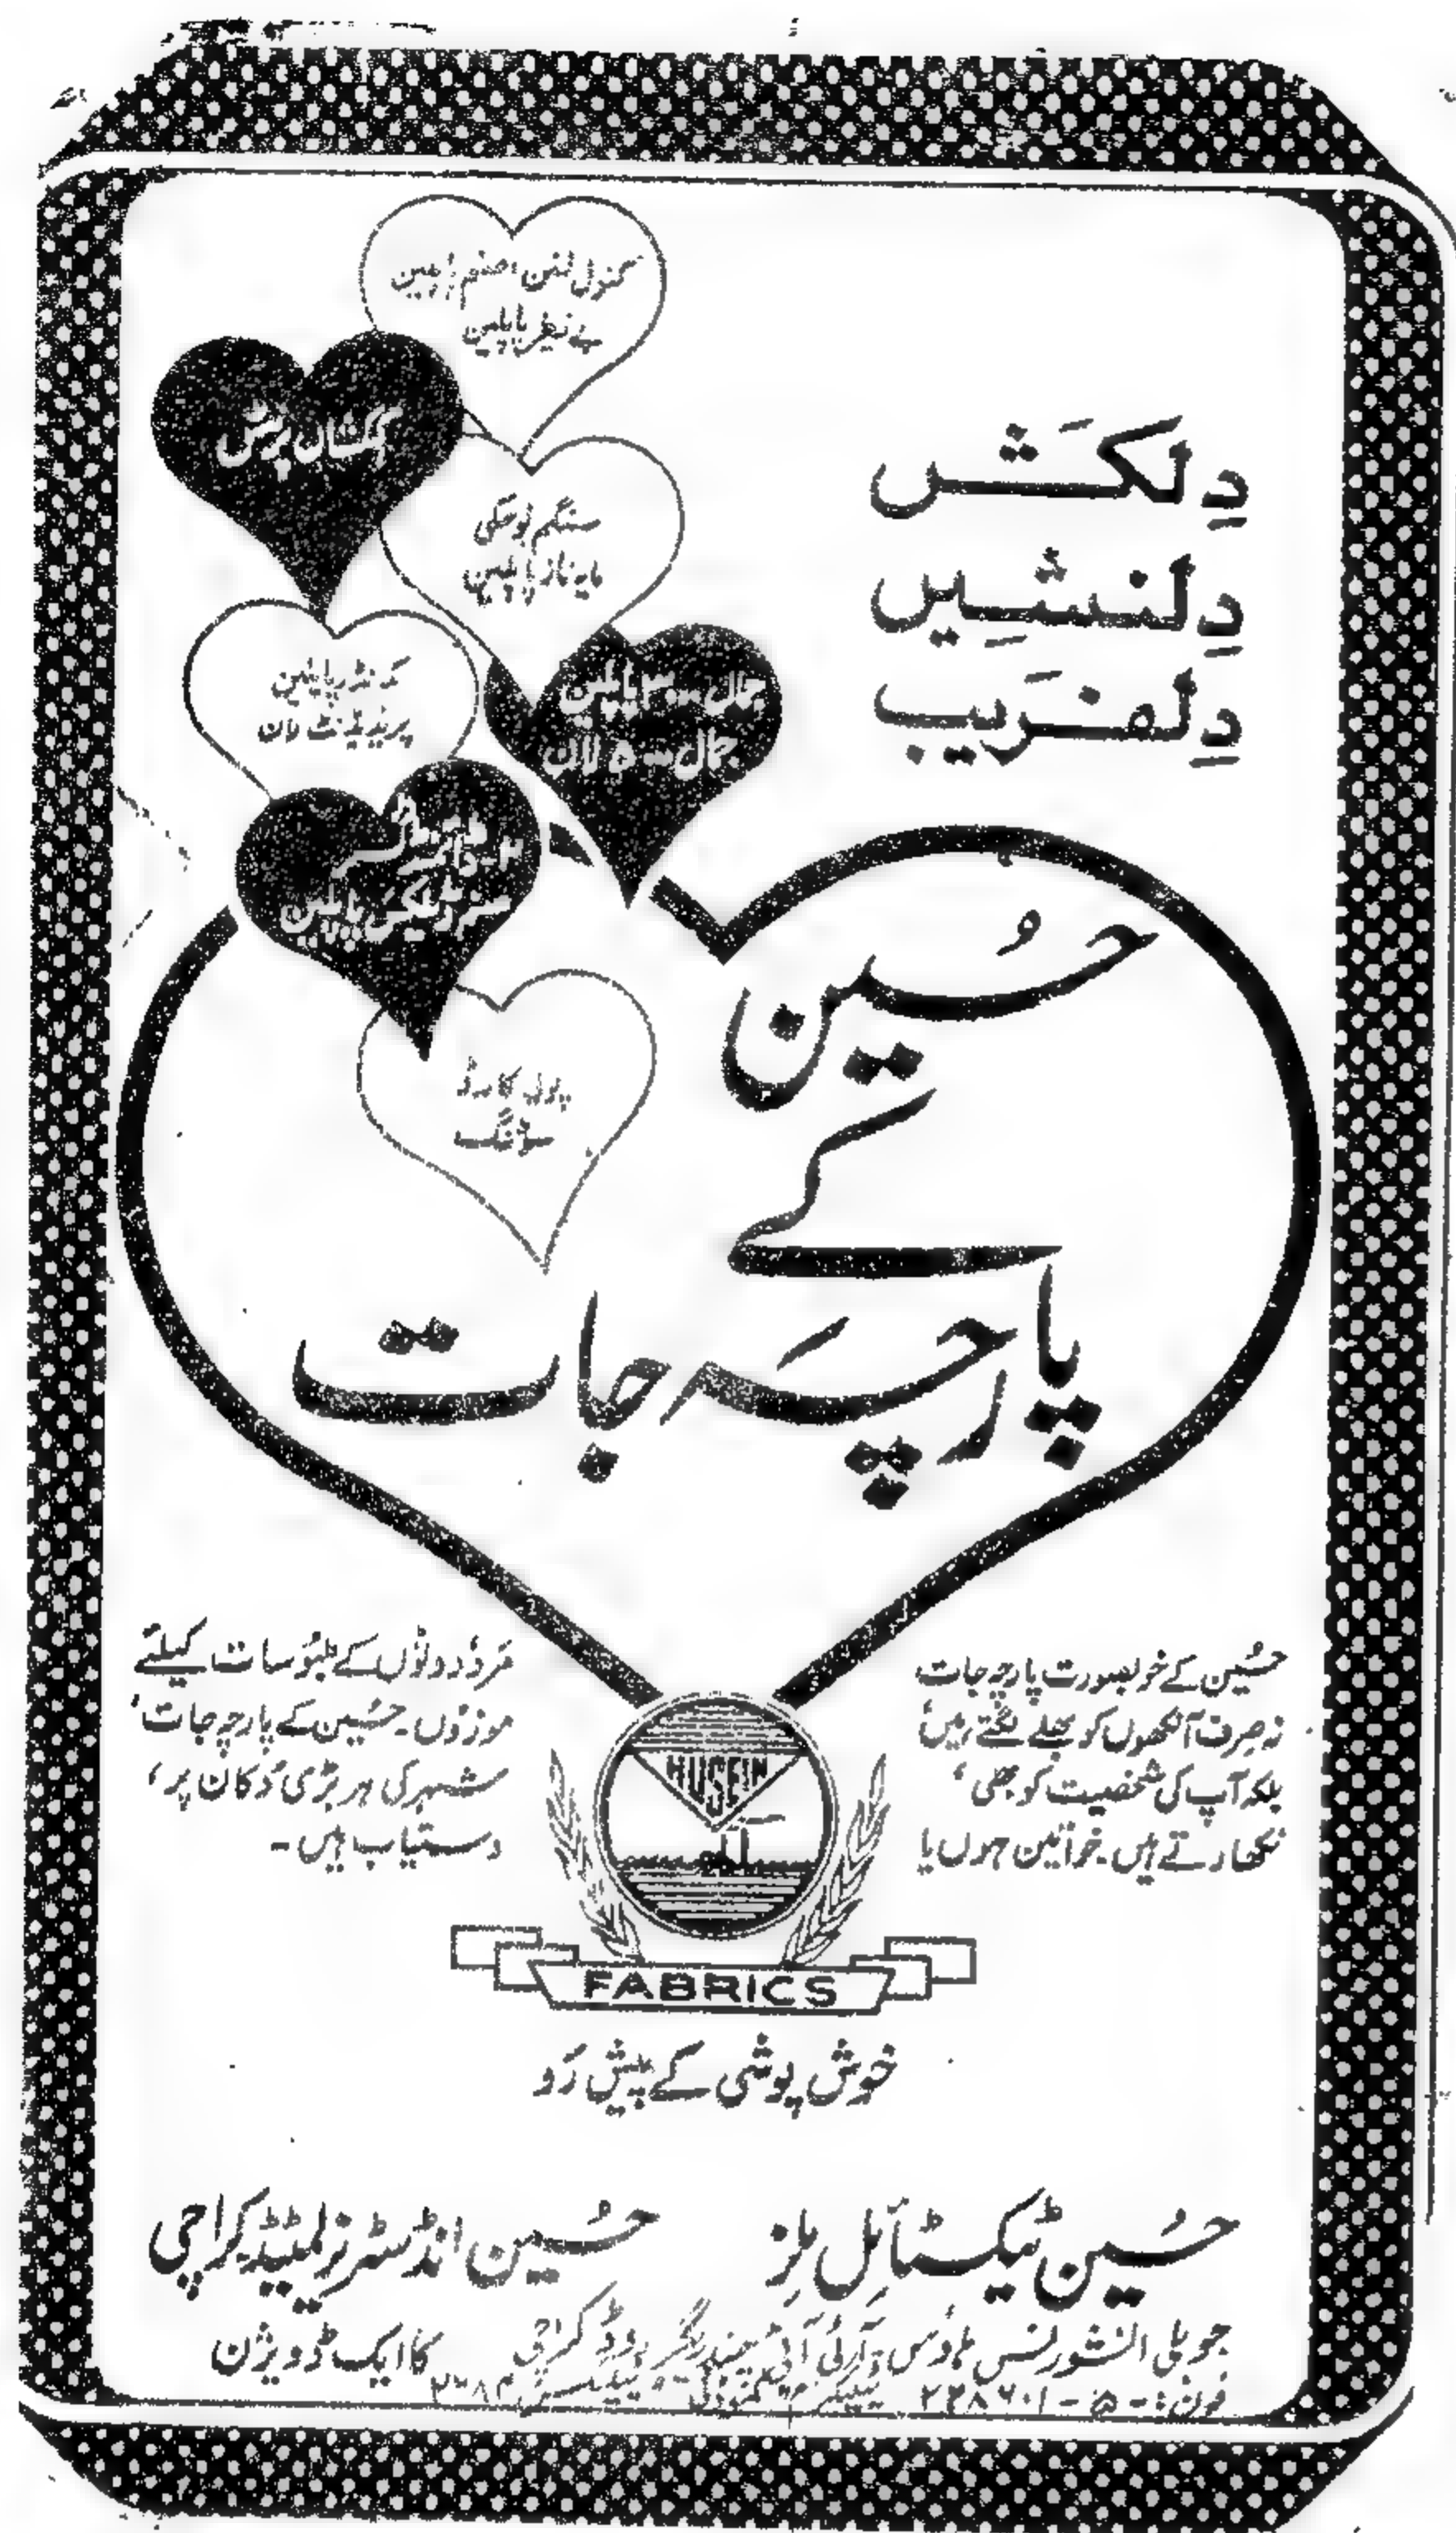 کنول لٹن، صنم پاپلین
بے نظیر پاپلین
کہکشاں پرنٹس
سنگم بوسکی
مایہ ناز پاپلین
پاپلین
پریذیڈنٹ لان
جمال ۳۰۰۰ پاپلین
جمال ۵۰۰۰ لان
پاپلین
پولی کارڈ
سوٹنگ
دِلکَش
دِلنشِیں
دِلفرَیب
حُسین
کے
پارچَہ جات
حُسین کے خوبصورت پارچہ جات
نہ صِرف آنکھوں کو بھلے لگتے ہیں
بلکہ آپ کی شخصیت کو بھی
نکھارتے ہیں۔ خواتین ہوں یا
مَرد، دونوں کے ملبُوسات کیلئے
موزوں۔ حُسین کے پارچہ جات،
شہر کی ہر بڑی دُکان پر،
دستیاب ہیں۔
HUSEIN
FABRICS
خوش پوشی کے پیش رَو
حُسین ٹیکسٹائل مِلز
حُسین انڈسٹریز لمیٹیڈ کراچی
کا ایک ڈویژن
جوبلی انشورنس ہاؤس، آئی آئی چندریگر روڈ کراچی
فون: ۵-۲۲۸۶۰۱